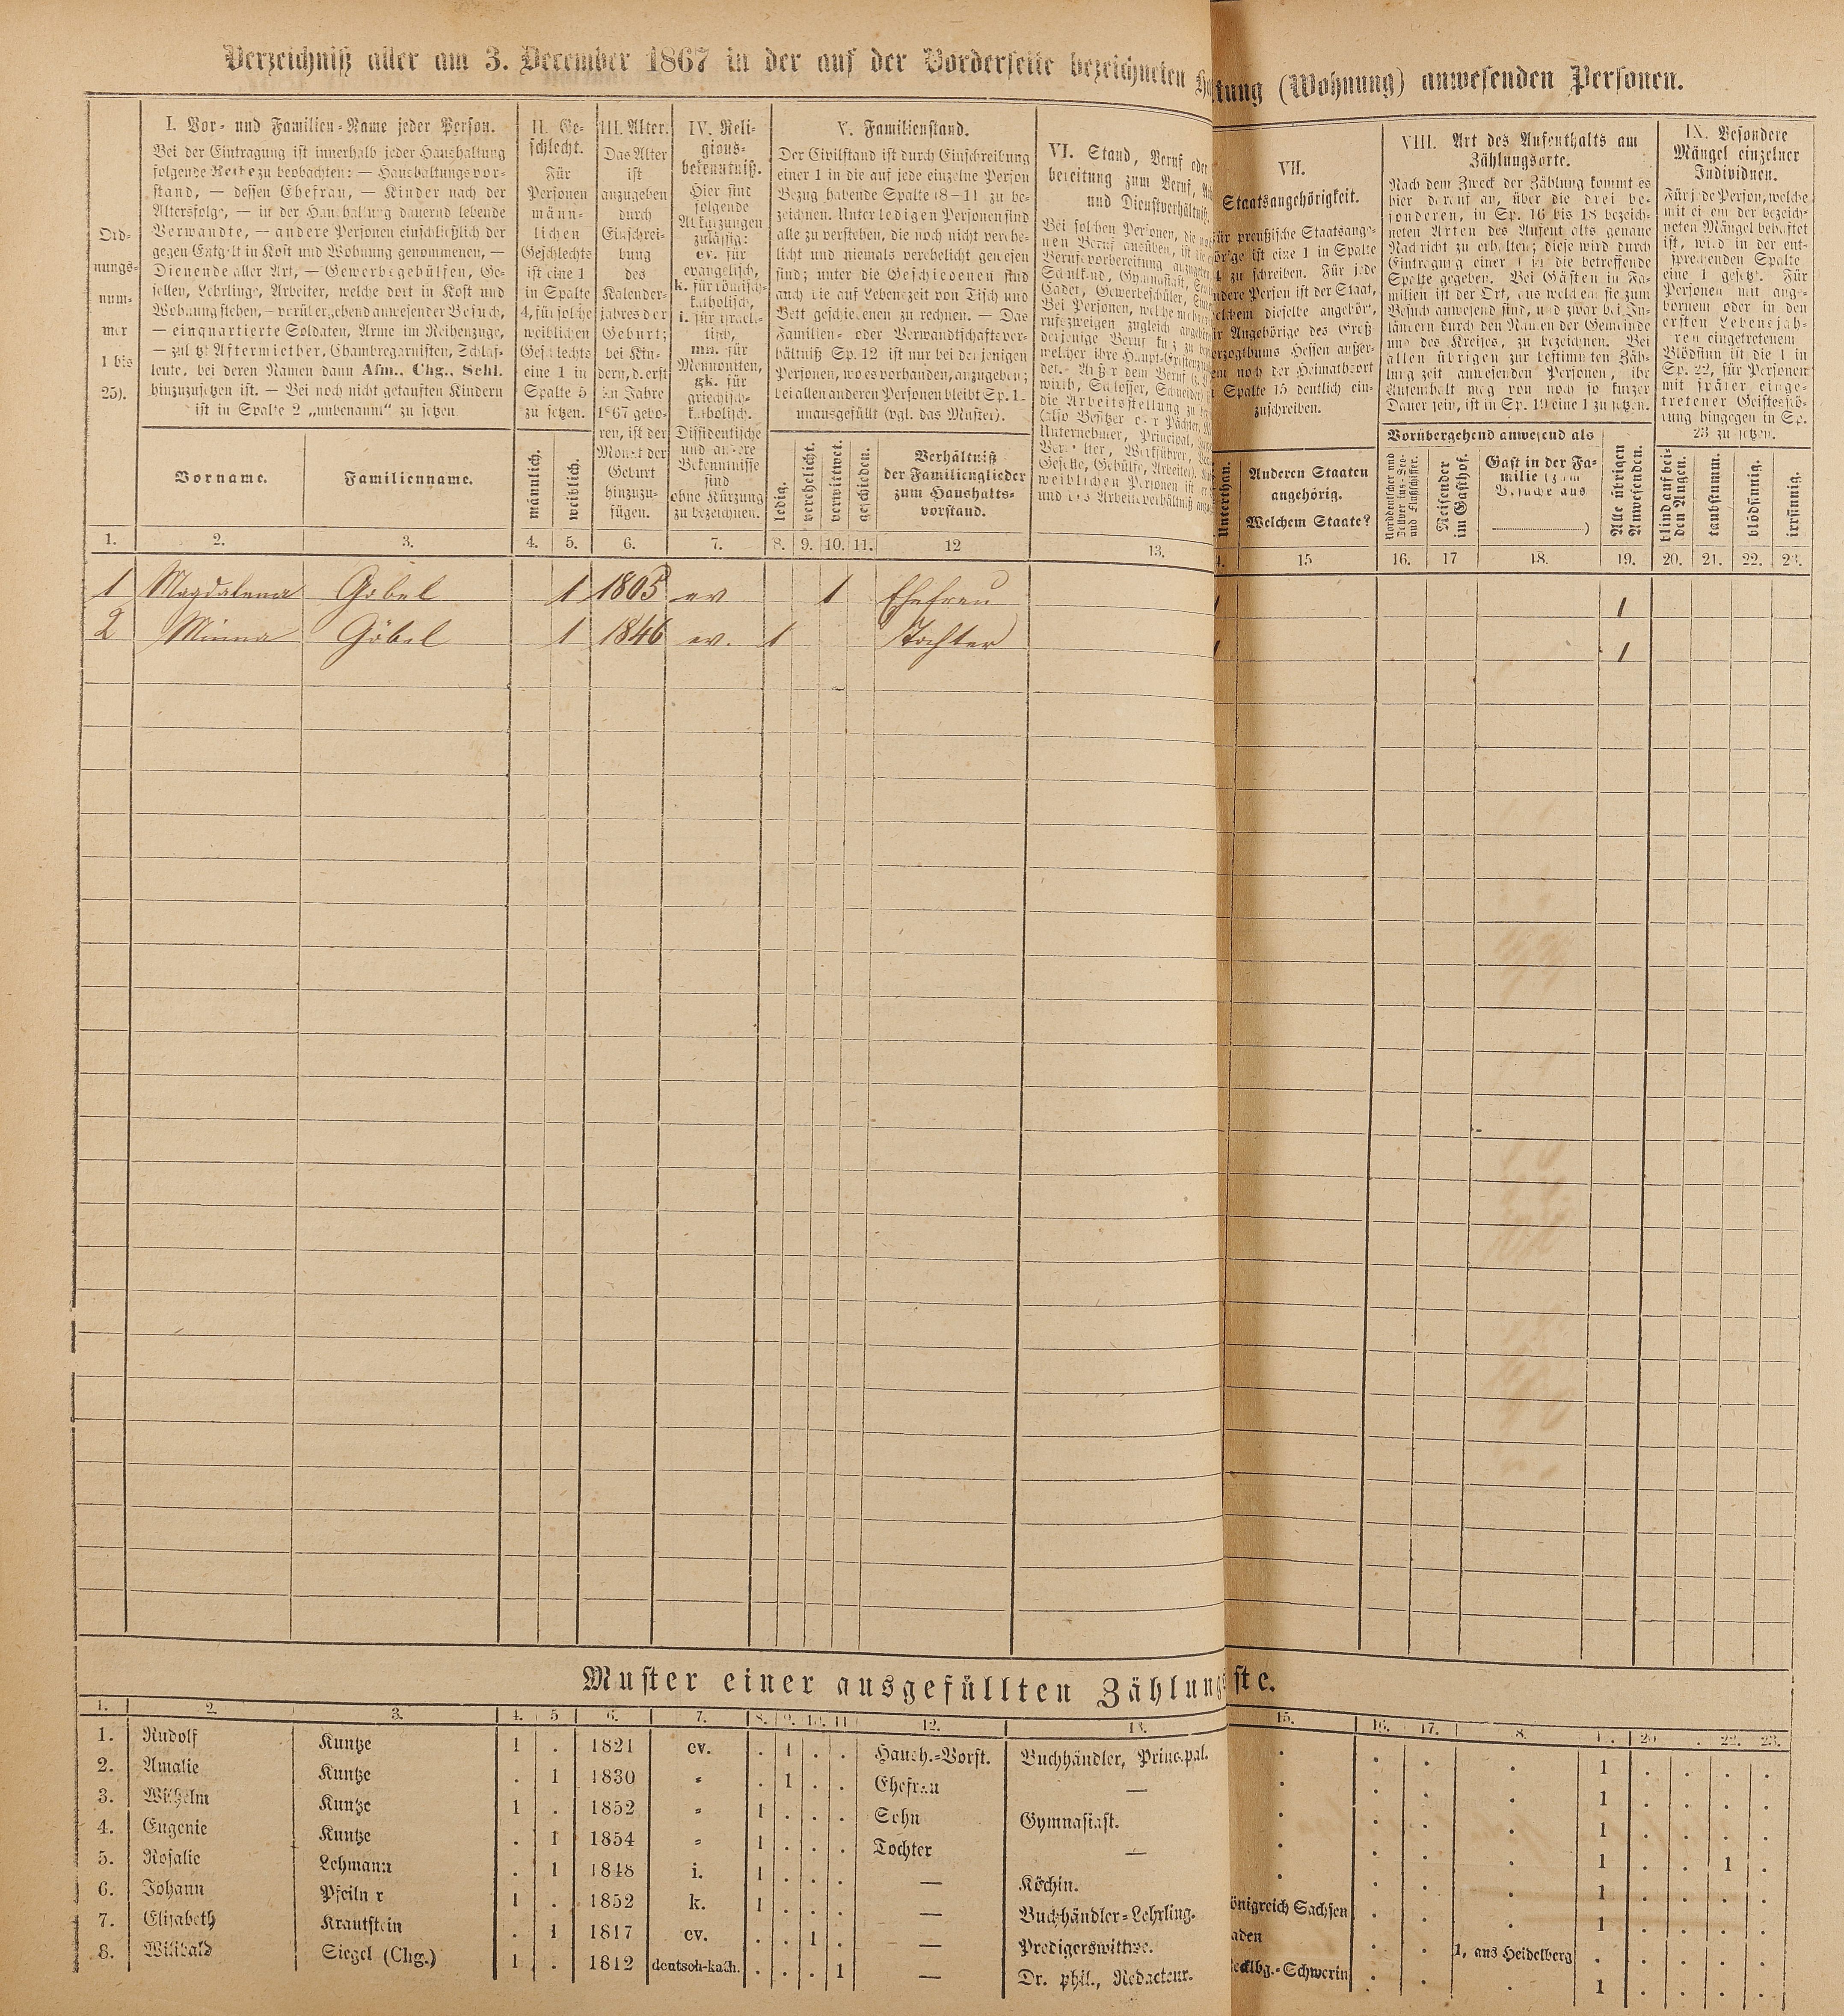 Verzeichniß aller am 3. December 1867 in der auf der Vorderseite bezeichneten Haltung (Wohnung) anwesenden Personen.
Ord-
nungs-
num-
mer
1 bis
25).
I. Vor- und Familien-Name jeder Person.
Bei der Eintragung ist innerhalb jeder Haushaltung
folgende Reihe zu beobachten: — Haushaltungsvor-
stand, — dessen Ehefrau, — Kinder nach der
Altersfolge, — in der Haushaltung dauernd lebende
Verwandte, — andere Personen einschließlich der
gegen Entgelt in Kost und Wohnung genommenen, —
Dienende aller Art, — Gewerbegehülfen, Ge-
sellen, Lehrlinge, Arbeiter, welche dort in Kost und
Wohnung stehen, — vorübergehend anwesender Besuch,
— einquartierte Soldaten, Arme im Reihenzuge,
— zuletzt Aftermiether, Chambregarnisten, Schlaf-
leute, bei deren Namen dann Afm., Chg., Schl.
hinzuzusetzen ist. — Bei noch nicht getauften Kindern
ist in Spalte 2 „unbenannt“ zu setzen
Vorname.
Familienname.
II. Ge-
schlecht.
Für
Personen
männ-
lichen
Geschlechts
ist eine 1
in Spalte
4, für solche
weiblichen
Geschlechts
eine 1 in
Spalte 5
zu setzen.
männlich.
weiblich.
III. Alter.
Das Alter
ist
anzugeben
durch
Einschrei-
bung
des
Kalender-
jahres der
Geburt;
bei Kin-
dern, d. erst
im Jahre
1867 gebo-
ren, ist der
Monat der
Geburt
hinzuzu-
fügen.
IV. Reli-
gions-
bekenntniß.
Hier sind
folgende
Abkürzungen
zulässig:
ev. für
evangelisch,
k. für römisch-
katholisch,
i. für israeli-
tisch,
mn. für
Mennoniten,
gk. für
griechisch-
katholisch.
Dissidentische
und andere
Bekenntnisse
sind
ohne Kürzung
zu bezeichnen.
V. Familienstand.
Der Civilstand ist durch Einschreibung
einer 1 in die auf jede einzelne Person
Bezug habende Spalte (8—11) zu be-
zeichnen. Unter ledigen Personen sind
alle zu verstehen, die noch nicht verehe-
licht und niemals verehelicht gewesen
sind; unter die Geschiedenen sind
auch die auf Lebenszeit von Tisch und
Bett geschiedenen zu rechnen. — Das
Familien- oder Verwandtschaftsver-
hältniß Sp. 12 ist nur bei denjenigen
Personen, wo es vorhanden, anzugeben;
bei allen anderen Personen bleibt Sp. 12
unausgefüllt (vgl. das Muster).
ledig.
verehelicht.
verwittwet.
geschieden.
Verhältniß
der Familienglieder
zum Haushalts-
vorstand.
VI. Stand, Beruf oder
bereitung zum Beruf,
und Dienstverhältniß.
Bei solchen Personen, die
nen Beruf ausüben, ist
Berufsvorbereitung anzugeben
Schulkind, Gymnasiast,
Cadet, Gewerbeschüler,
Bei Personen, welche mehrere
rufszweigen zugleich angehören
derjenige Beruf
welcher ihre Haupt-
der. — Außer dem Beruf
wirth, Schlosser, Schneider)
die Arbeitsstellung zu
(also Besitzer oder Pächter,
Unternehmer, Principal,
Verwalter, Werkführer,
Geselle, Gehülfe, Arbeiter).
weiblichen Personen ist
und das Arbeitsverhältniß
VII.
Staatsangehörigkeit.
für preußische Staatsange-
hörige ist eine 1 in Spalte
14 zu schreiben. Für jede
andere Person ist der Staat,
welchem dieselbe angehört,
für Angehörige des Groß-
herzogthums Hessen außer-
dem noch der Heimathsort
Spalte 15 deutlich ein-
zuschreiben.
Unterthan.
Anderen Staaten
angehörig.
Welchem Staate?
VIII. Art des Aufenthalts am
Zählungsorte.
Nach dem Zweck der Zählung kommt es
hier darauf an, über die drei be-
sonderen, in Sp. 16 bis 18 bezeich-
neten Arten des Aufenthalts genaue
Nachricht zu erhalten; diese wird durch
Eintragung einer 1 in die betreffende
Spalte gegeben. Bei Gästen in Fa-
milien ist der Ort, aus welchem sie zum
Besuch anwesend sind, und zwar bei In-
ländern durch den Namen der Gemeinde
und des Kreises, zu bezeichnen. Bei
allen übrigen zur bestimmten Zäh-
lungszeit anwesenden Personen, ihr
Aufenthalt mag von noch so kurzer
Dauer sein, ist in Sp. 19 eine 1 zu setzen.
Vorübergehend anwesend als
Norddeutscher und
Zollvereins-See-
und Flußschiffer.
Reisender
im Gasthof.
Gast in der Fa-
milie (zum
Besuche aus
)
Alle übrigen
Anwesenden.
IX. Besondere
Mängel einzelner
Individuen.
Für jede Person, welche
mit einem der bezeich-
neten Mängel behaftet
ist, wird in der ent-
sprechenden Spalte
eine 1 gesetzt. Für
Personen mit ange-
bornem oder in den
ersten Lebensjah-
ren eingetretenem
Blödsinn ist die 1 in
Sp. 22, für Personen
mit später einge-
tretener Geistesstö-
rung hingegen in Sp.
23 zu setzen.
blind auf bei-
den Augen.
taubstumm.
blödsinnig.
irrsinnig.
1. 2. 3. 4. 5. 6. 7. 8. 9. 10. 11. 12 13. 15 16. 17 18. 19. 20. 21. 22. 23.
1 Magdalena Gobel 1 1805 ev 1 Ehefrau 1 1
2 Minna Göbel 1 1846 ev. 1 Tochter 1 1
Muster einer ausgefüllten Zählungsliste.
1. 2. 3. 4. 5 6. 7. 8. 9. 10. 11 12. 13. 15. 16. 17. 8. 20 22. 23.
1. Rudolf Kuntze 1 . 1821 ev. . 1 . . Haush.-Vorst. Buchhändler, Principal. . . . . 1 . . . .
2. Amalie Kuntze . 1 1830 „ . 1 . . Ehefrau — . . . . 1 . . . .
3. Wilhelm Kuntze 1 . 1852 „ 1 . . . Sohn Gymnasiast. . . . . 1 . . . .
4. Eugenie Kuntze . 1 1854 „ 1 . . . Tochter — . . . . 1 . . 1 .
5. Rosalie Lehmann . 1 1848 i. 1 . . . — Köchin. . . . . 1 . . . .
6. Johann Pfeilner 1 . 1852 k. 1 . . . — Buchhändler-Lehrling. önigreich Sachsen . . . 1 . . . .
7. Elisabeth Krautstein . 1 1817 ev. . . 1 . — Predigerswittwe. aden . . 1, aus Heidelberg . . . . .
8. Wilibald Siegel (Chg.) 1 . 1812 deutsch-kath. . . . 1 — Dr. phil., Redacteur. ecklbg.-Schwerin . . . 1 . . . .